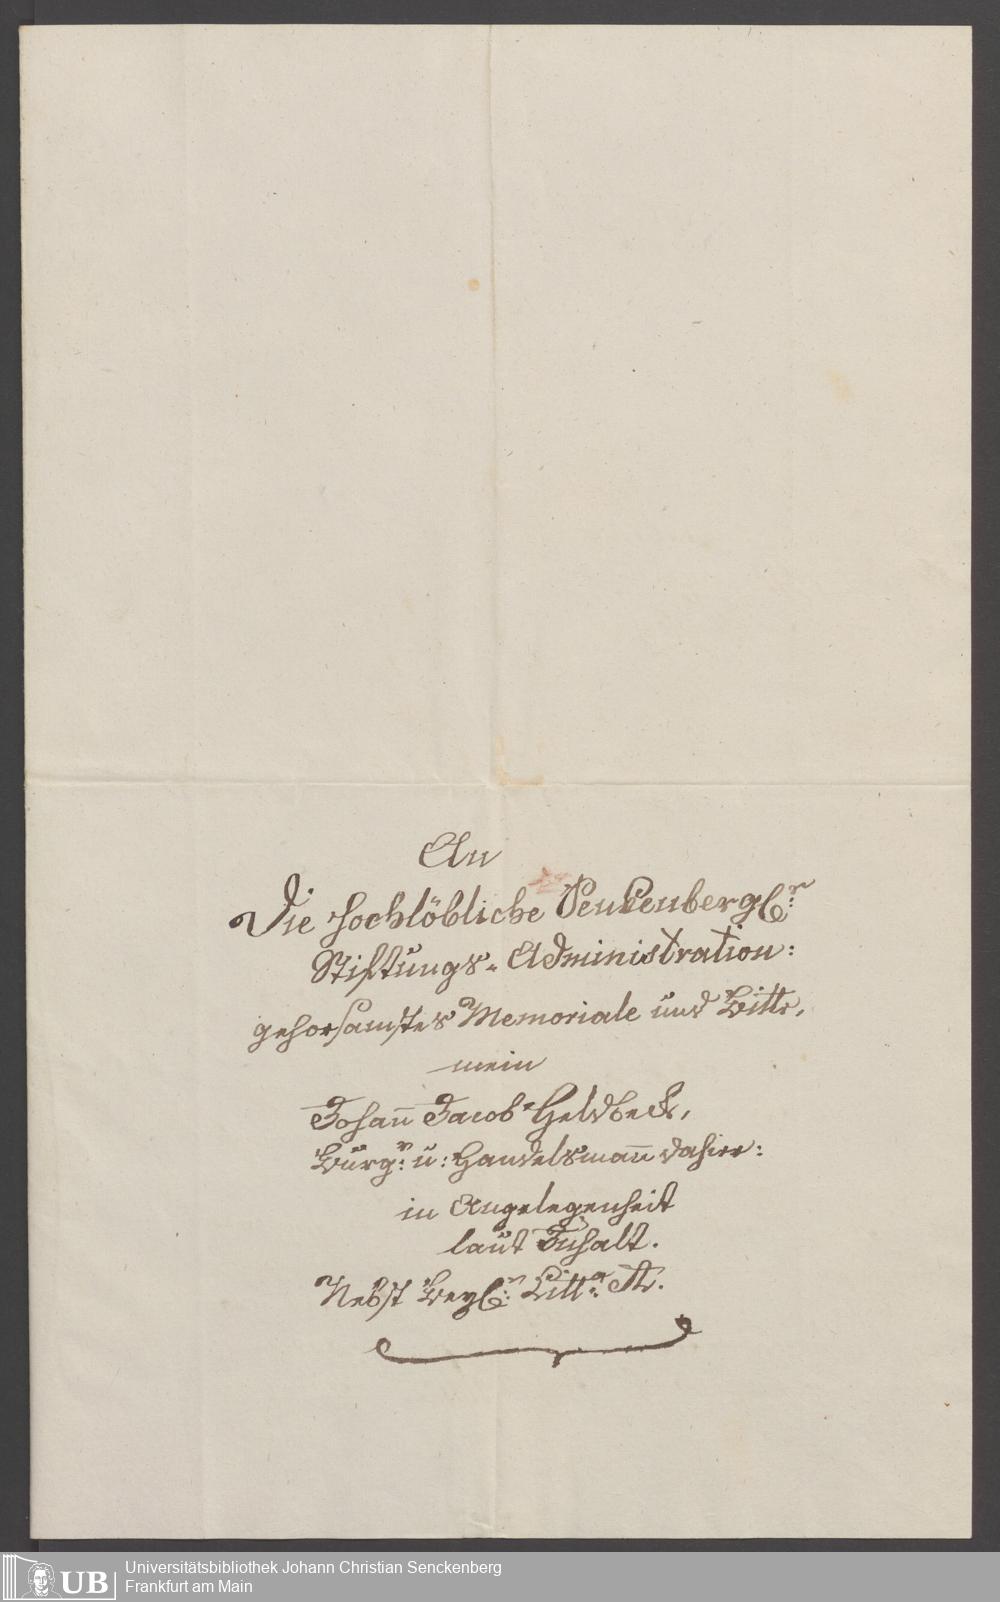 An
Die Hochlöbliche Senkenbergl:r
Stiftungs- Administration:
gehorsamstes Memoriale und Bitte,
mein
Johan̅ Jacob Heldbeck,
Burg:r u: Handelsman̅ dahier:
in Angelegenheit
laut Inhalt.
Nebst Beyl:n Litt:a
UB
Universitätsbibliothek Johann Christian Senckenberg
Frankfurt am Main